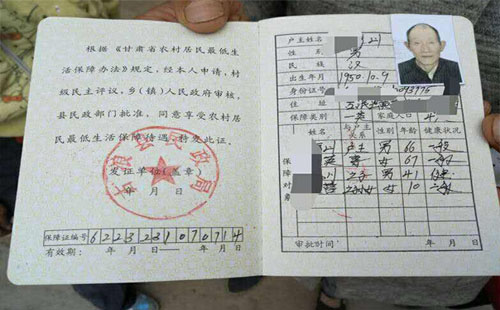 根据《甘肃省农村居民最低生
活保障办法》规定，经本人申请，村
级民主评议，乡(镇)人民政府审核，
县民政部门批准，同意享受农村居
民最低生活保障待遇，特发此证。
县民政局
发证单位(盖章)
年 月 日
保障证编号 6223231070714
有效期： 年 月 日— 年 月 日
户主姓名
性 别 男
民 族 汉
出生年月 1950.10.9
身份证号
住址
保障类别 一类 家庭人口 4
保障对象
姓名 性别 年龄 健康状况
户主 男 66 一般
妻 女 67 一般
男 41
女 10
审批时间 年 月 日